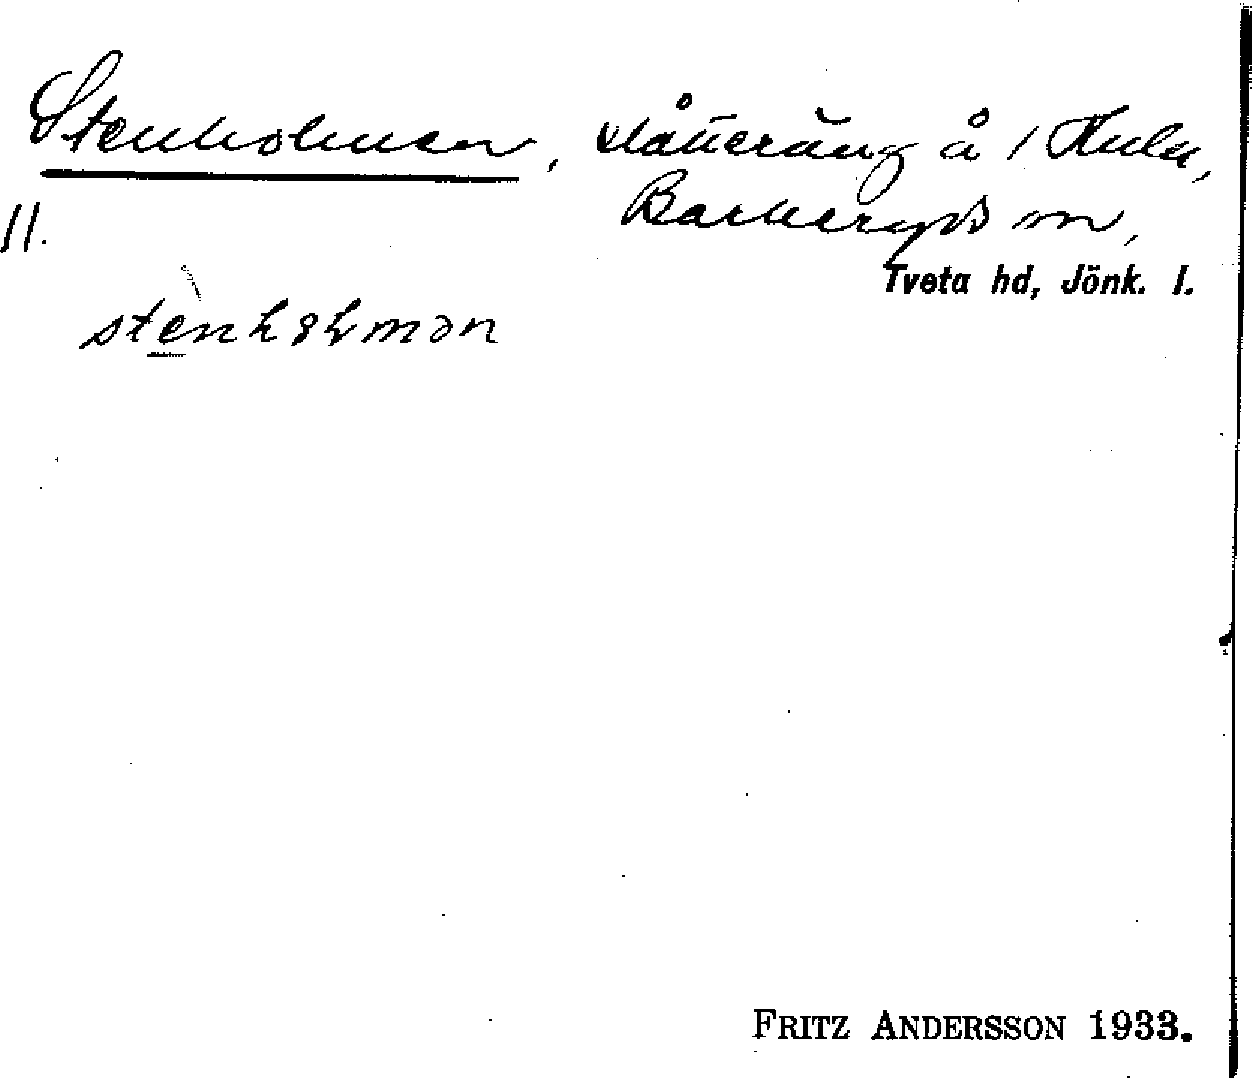 Stenholmen, slåtteräng å 1 Hulu,
11. Barkeryds sn,
Tveta hd, Jönk. l.
stenholmən
FRITZ ANDERSSON 1933.